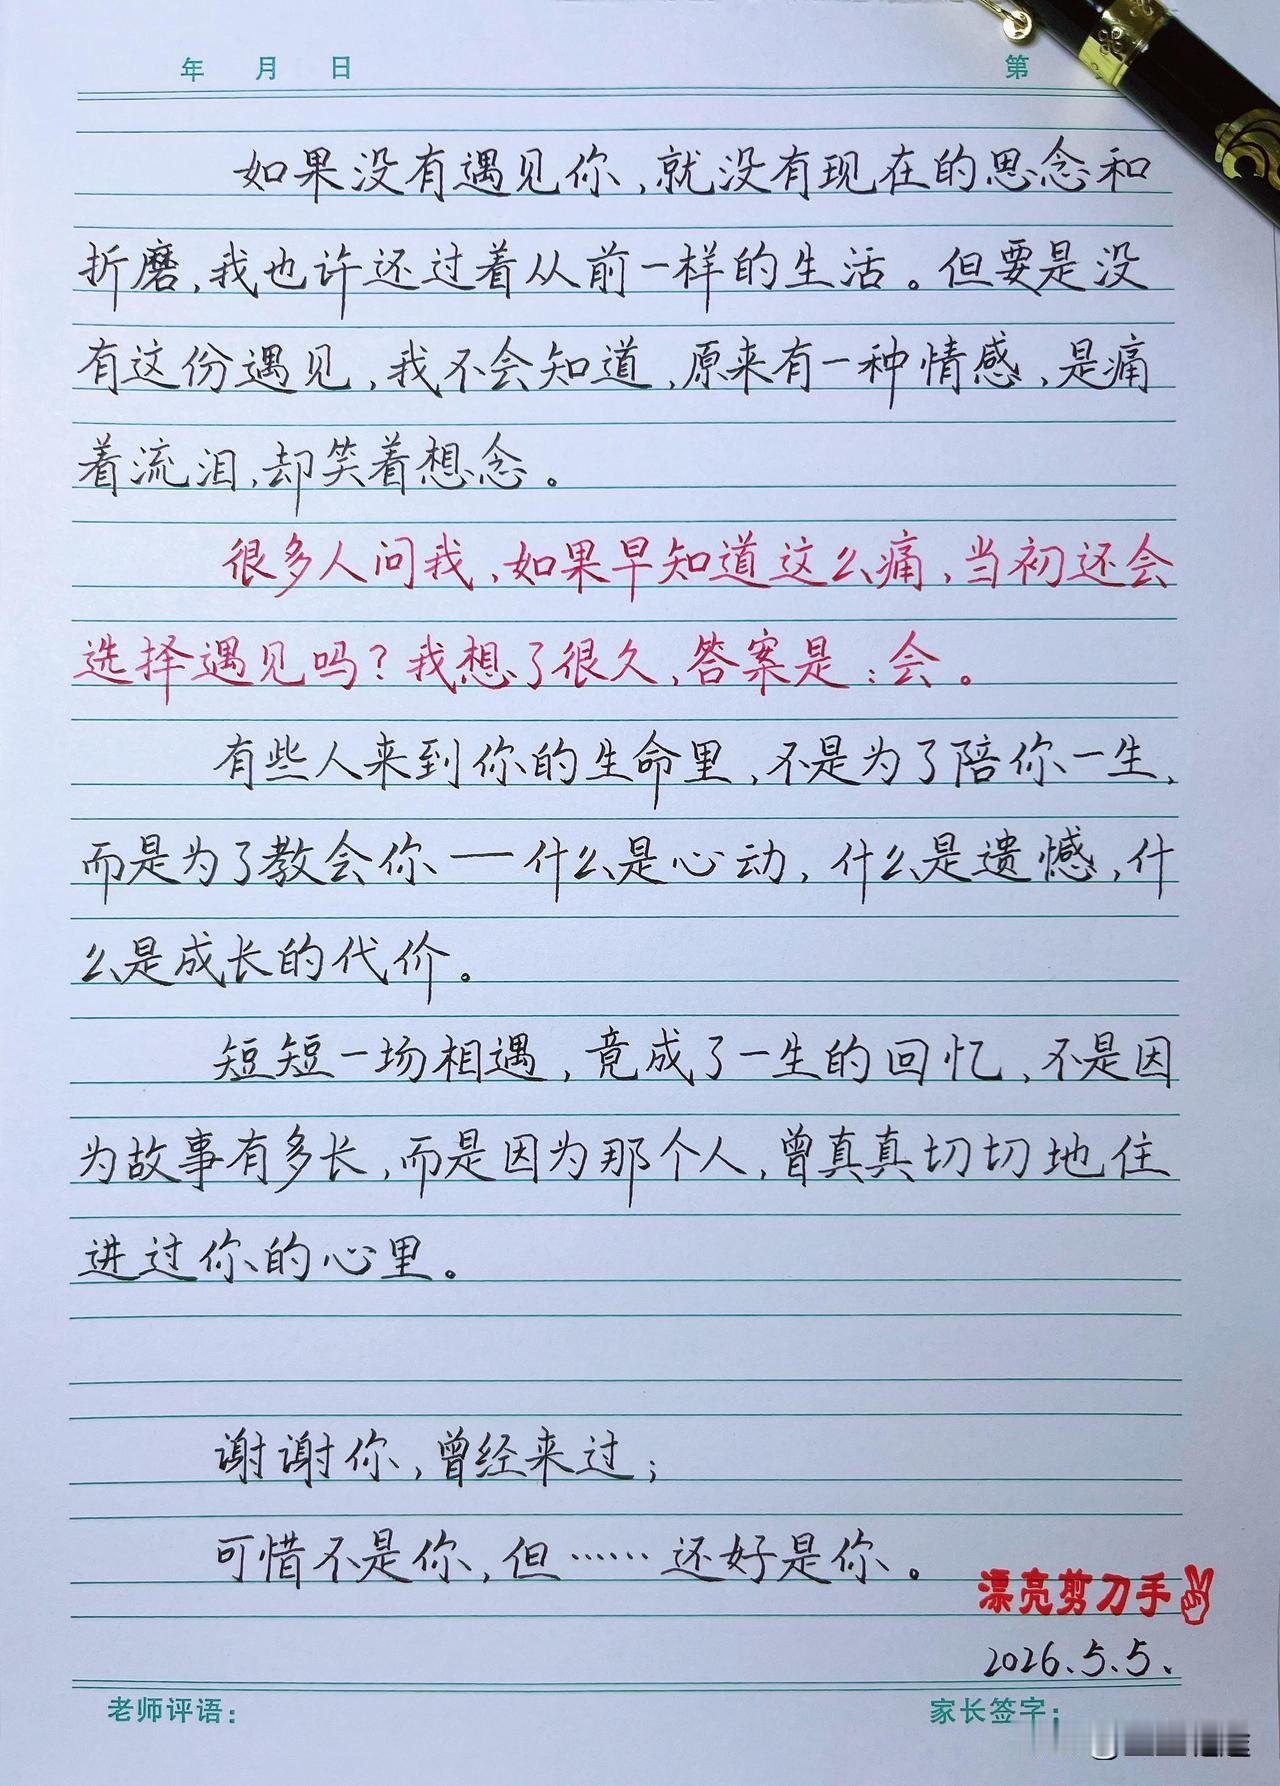 年 月 日 第
如果没有遇见你,就没有现在的思念和
折磨,我也许还过着从前一样的生活。但要是没
有这份遇见,我不会知道,原来有一种情感,是痛
着流泪,却笑着想念。
很多人问我,如果早知道这么痛,当初还会
选择遇见吗?我想了很久,答案是:会。
有些人来到你的生命里,不是为了陪你一生,
而是为了教会你——什么是心动,什么是遗憾,什
么是成长的代价。
短短一场相遇,竟成了一生的回忆,不是因
为故事有多长,而是因为那个人,曾真真切切地住
进过你的心里。
谢谢你,曾经来过;
可惜不是你,但……还好是你。
漂亮剪刀手
2026.5.5.
老师评语: 家长签字: